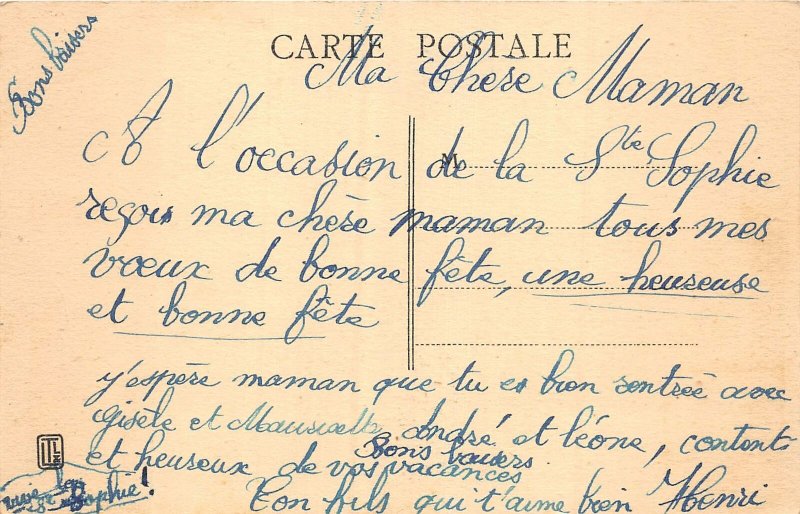 Bons baisers
CARTE POSTALE
Ma Chère Maman
A l'occasion de la Ste Sophie
reçois ma chère maman tous mes
vœux de bonne fête, une heureuse
et bonne fête
j'espère maman que tu es bien rentrée avec
Gisèle et André et Léone, contents
et heureux de vos vacances
Bons baisers
Ton fils qui t'aime bien Henri
Sophie!
M.